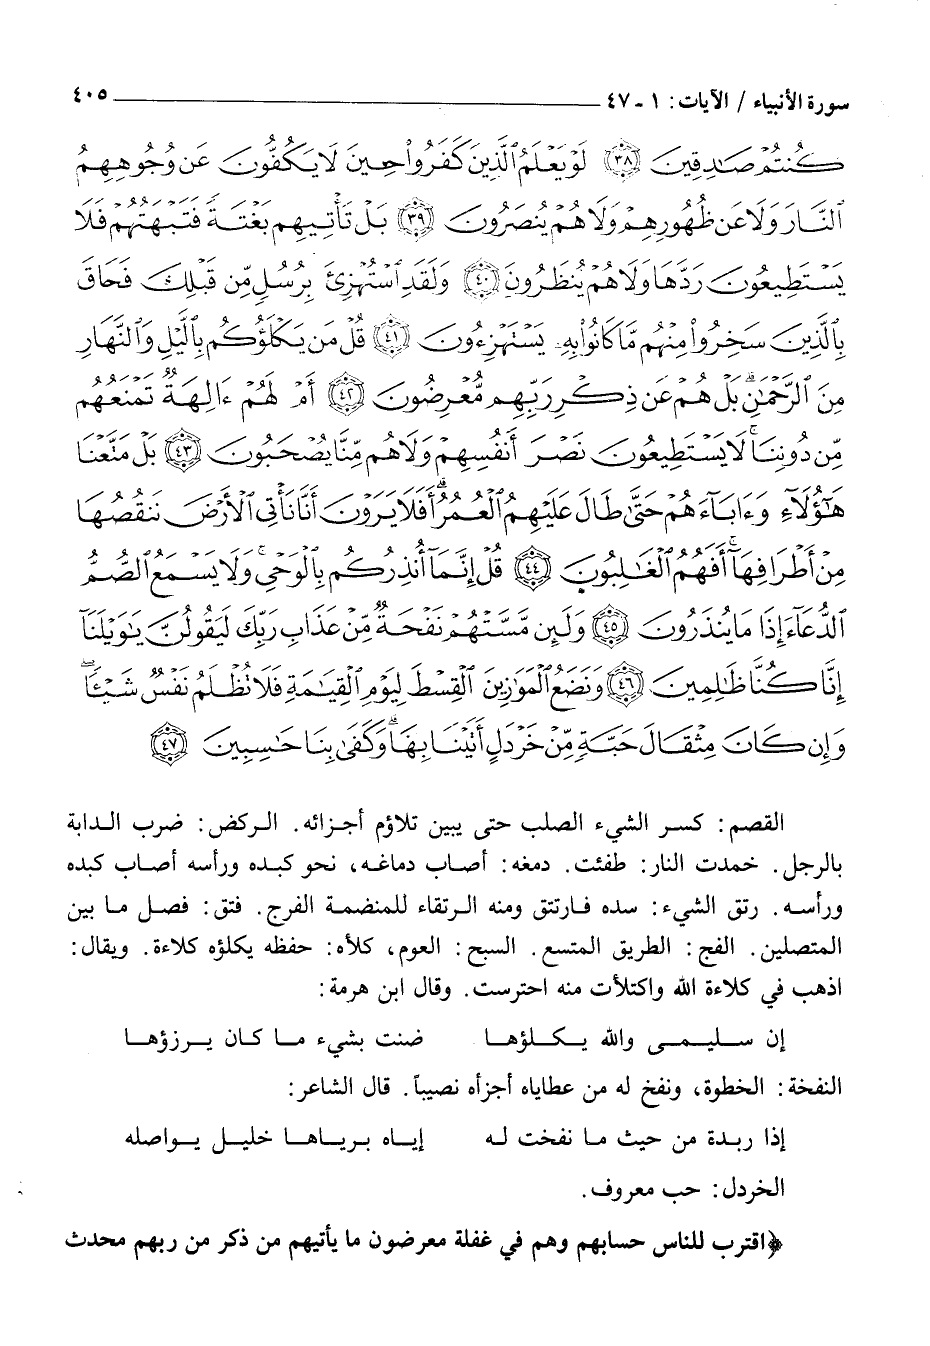 سورة الأنبياء / الآيات: ١ - ٤٧ ٤٠٥
كُنتُمْ صَٰدِقِينَ ﴿٣٨﴾ لَوْ يَعْلَمُ ٱلَّذِينَ كَفَرُوا۟ حِينَ لَا يَكُفُّونَ عَن وُجُوهِهِمُ
ٱلنَّارَ وَلَا عَن ظُهُورِهِمْ وَلَا هُمْ يُنصَرُونَ ﴿٣٩﴾ بَلْ تَأْتِيهِم بَغْتَةً فَتَبْهَتُهُمْ فَلَا
يَسْتَطِيعُونَ رَدَّهَا وَلَا هُمْ يُنظَرُونَ ﴿٤٠﴾ وَلَقَدِ ٱسْتُهْزِئَ بِرُسُلٍ مِّن قَبْلِكَ فَحَاقَ
بِٱلَّذِينَ سَخِرُوا۟ مِنْهُم مَّا كَانُوا۟ بِهِۦ يَسْتَهْزِءُونَ ﴿٤١﴾ قُلْ مَن يَكْلَؤُكُم بِٱلَّيْلِ وَٱلنَّهَارِ
مِنَ ٱلرَّحْمَٰنِ ۗ بَلْ هُمْ عَن ذِكْرِ رَبِّهِم مُّعْرِضُونَ ﴿٤٢﴾ أَمْ لَهُمْ ءَالِهَةٌ تَمْنَعُهُم
مِّن دُونِنَا ۚ لَا يَسْتَطِيعُونَ نَصْرَ أَنفُسِهِمْ وَلَا هُم مِّنَّا يُصْحَبُونَ ﴿٤٣﴾ بَلْ مَتَّعْنَا
هَٰٓؤُلَآءِ وَءَابَآءَهُمْ حَتَّىٰ طَالَ عَلَيْهِمُ ٱلْعُمُرُ ۗ أَفَلَا يَرَوْنَ أَنَّا نَأْتِى ٱلْأَرْضَ نَنقُصُهَا
مِنْ أَطْرَافِهَآ ۚ أَفَهُمُ ٱلْغَٰلِبُونَ ﴿٤٤﴾ قُلْ إِنَّمَآ أُنذِرُكُم بِٱلْوَحْىِ ۚ وَلَا يَسْمَعُ ٱلصُّمُّ
ٱلدُّعَآءَ إِذَا مَا يُنذَرُونَ ﴿٤٥﴾ وَلَئِن مَّسَّتْهُمْ نَفْحَةٌ مِّنْ عَذَابِ رَبِّكَ لَيَقُولُنَّ يَٰوَيْلَنَآ
إِنَّا كُنَّا ظَٰلِمِينَ ﴿٤٦﴾ وَنَضَعُ ٱلْمَوَٰزِينَ ٱلْقِسْطَ لِيَوْمِ ٱلْقِيَٰمَةِ فَلَا تُظْلَمُ نَفْسٌ شَيْـًٔا ۖ
وَإِن كَانَ مِثْقَالَ حَبَّةٍ مِّنْ خَرْدَلٍ أَتَيْنَا بِهَا ۗ وَكَفَىٰ بِنَا حَٰسِبِينَ ﴿٤٧﴾
القصم: كسر الشيء الصلب حتى يبين تلاؤم أجزائه. الركض: ضرب الدابة
بالرجل. خمدت النار: طفئت. دمغه: أصاب دماغه، نحو كبده ورأسه أصاب كبده
ورأسه. رتق الشيء: سده فارتتق ومنه الرتقاء للمنضمة الفرج. فتق: فصل ما بين
المتصلين. الفج: الطريق المتسع. السبح: العوم، كلأه: حفظه يكلؤه كلاءة. ويقال:
اذهب في كلاءة الله واكتلأت منه احترست. وقال ابن هرمة:
إن سليمى والله يكلؤها ضنت بشيء ما كان يرزؤها
النفخة: الخطوة، ونفخ له من عطاياه أجزأه نصيباً. قال الشاعر:
إذا ربدة من حيث ما نفخت له إياه برياها خليل يواصله
الخردل: حب معروف.
﴿اقترب للناس حسابهم وهم في غفلة معرضون ما يأتيهم من ذكر من ربهم محدث